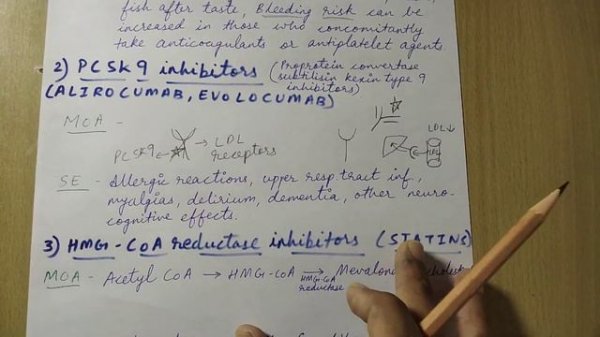 fish after taste, Bleeding risk can be
increased in those who concomitantly
take anticoagulants or antiplatelet agents
2) PCSK9 inhibitors (Proprotein convertase
subtilisin kexin type 9
inhibitors)
(ALIROCUMAB, EVOLOCUMAB)
MOA -
PCSK9 → LDL
receptors
LDL↓
SE - Allergic reactions, upper resp tract inf.,
myalgias, delirium, dementia, other neuro-
cognitive effects.
3) HMG-CoA reductase inhibitors (STATINS)
MOA - Acetyl CoA → HMG-CoA → Mevalon
HMG-CoA
reductase